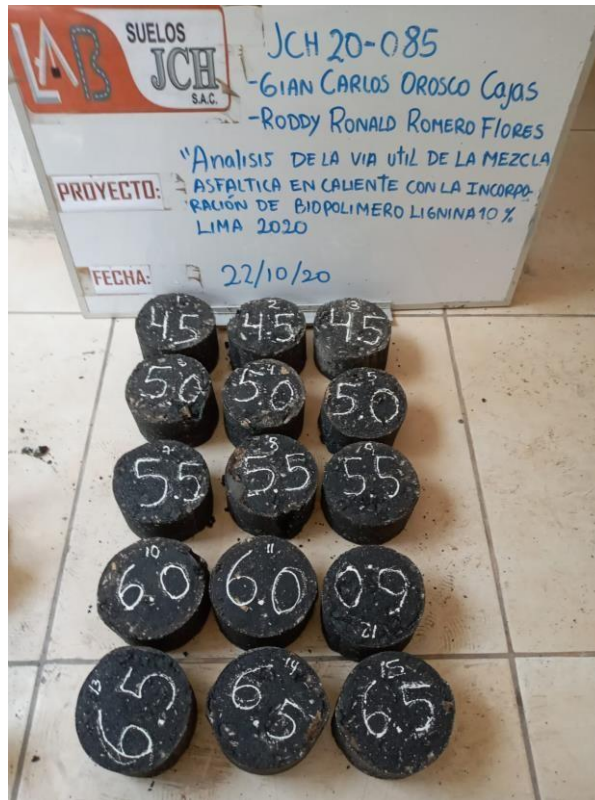 LAB
SUELOS
JCH
S.A.C.
JCH 20-085
-GIAN CARLOS OROSCO CaJas
-RODDY RONALD ROMERO FLORES
"Analisis DE LA VIA UTIL DE LA MEZCLA
PROYECTO: ASFALTICA EN CALIENTE CON LA INCORPO-
RACIÓN DE BIOPOLIMERO LIGNINA 10 %
LIMA 2020
FECHA: 22/10/20
1 2 3
4.5 4.5 4.5
4 5
5.0 5.0 5.0
7 8 9
5.5 5.5 5.5
10 11
6.0 6.0 6.0
12
13 14 15
6.5 6.5 6.5